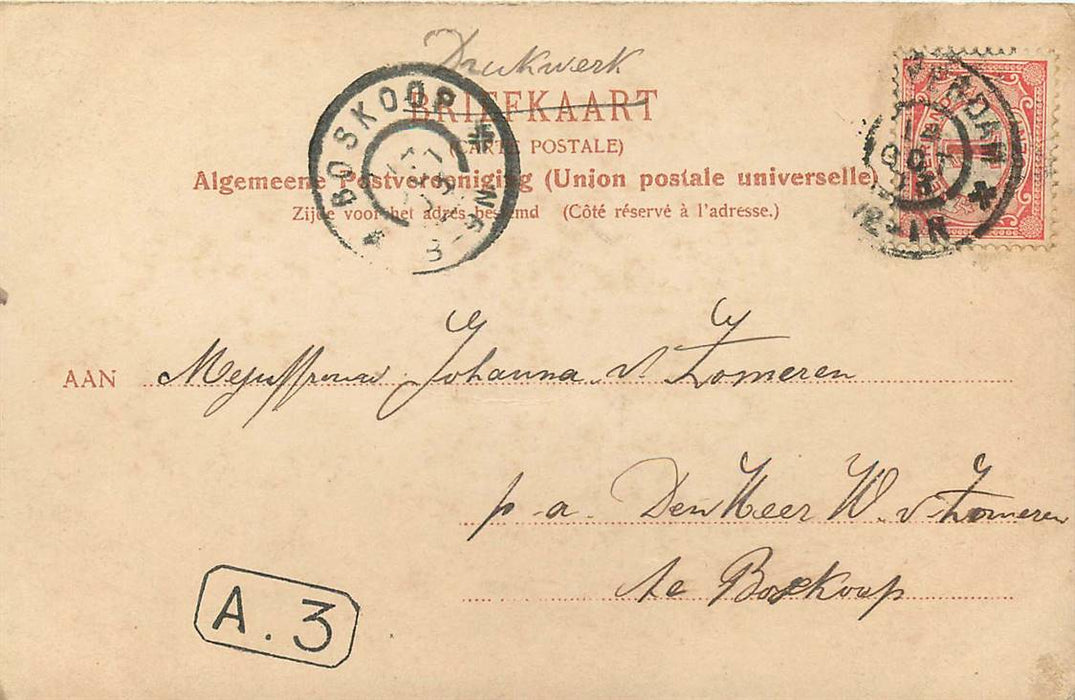 Drukwerk
BRIEFKAART
(CARTE POSTALE)
Algemeene Postvereeniging (Union postale universelle)
Zijde voor het adres bestemd (Côté réservé à l'adresse.)
BOSKOOP
1
AAN Mejuffrouw Johanna v. Zomeren
p. a. Den Heer W. v. Zomeren
te Boskoop
A. 3